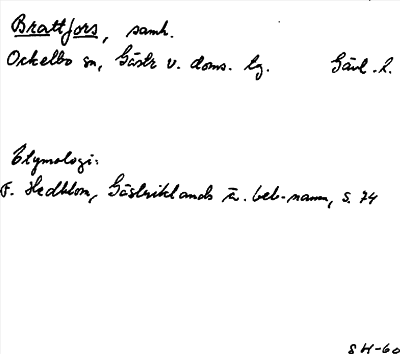 Brattfors, samh.
Ockelbo sn, Gästr v. doms. lg. Gävl. l.
Etymologi:
F. Hedblom, Gästriklands ä. beb-namn, s. 74
SH-60